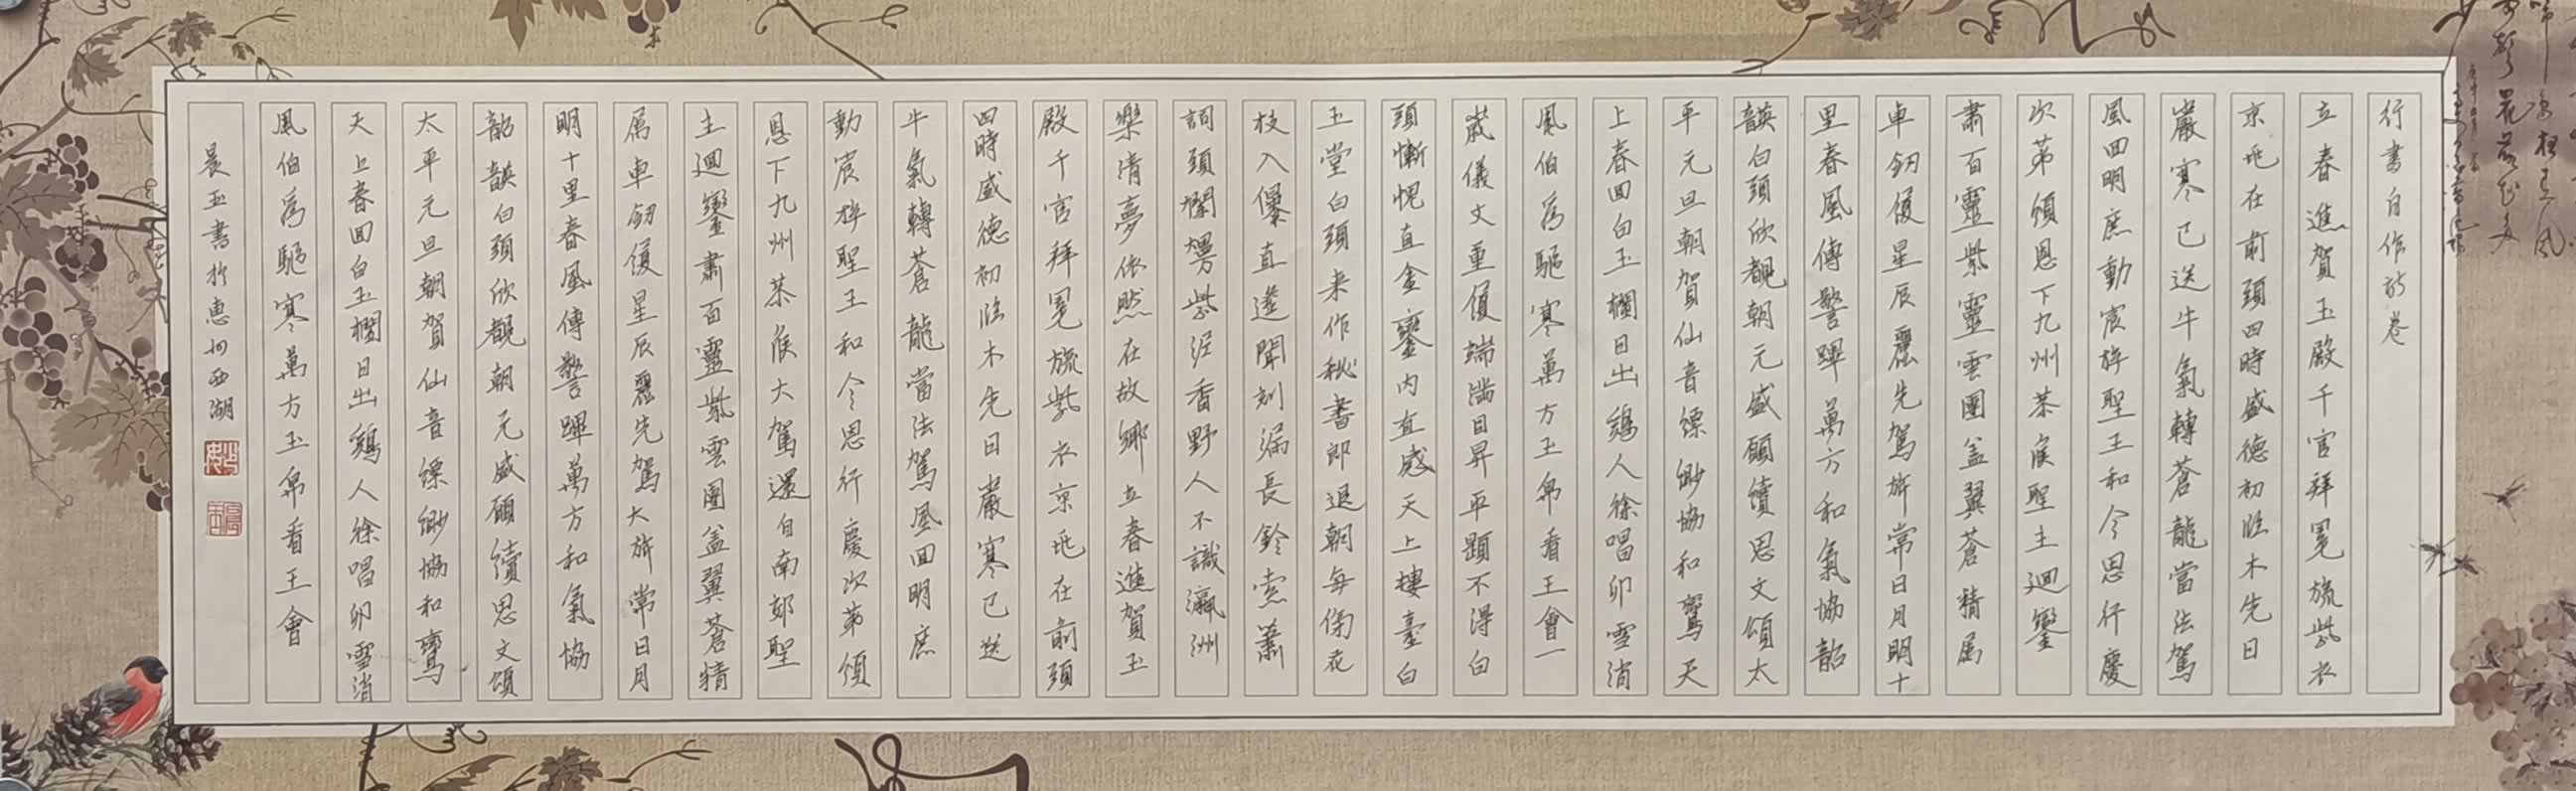 行書自作詩卷
立春進賀玉殿千官拜冕旒紫衣
京兆在前頭四時盛德初臨木先日
嚴寒已送牛氣轉蒼龍當法駕
風回明庶動宸旂聖王和令思行慶
次第頒恩下九州恭候聖主迴鑾
肅百靈紫靈雲團蓋翼蒼精属
車釰履星辰麗先駕旂常日月明十
里春風傳警蹕萬方和氣協韶
韺白頭欣覩朝元盛願續思文頌太
平元旦朝賀仙音縹緲協和鸞天
上春回白玉欄日出鷄人徐唱卯雪消
風伯爲驅寒萬方玉帛看王會一
歲儀文重履端滿目昇平題不得白
頭慚愧直金鑾内直感天上樓臺白
玉堂白頭来作秘書郎退朝每傍花
枝入儤直遥聞刻漏長鈴索蕭
詞頭爛熳紫泥香野人不識瀛洲
樂清夢依然在故鄉立春進賀玉
殿千官拜冕旒紫衣京兆在前頭
四時盛德初臨木先日嚴寒已送
牛氣轉蒼龍當法駕風回明庶
動宸旂聖王和令思行慶次第頒
恩下九州恭候大駕還自南郊聖
主迴鑾肅百靈紫雲團蓋翼蒼精
属車釰履星辰麗先駕大旂常日月
明十里春風傳警蹕萬方和氣協
韶韺白頭欣覩朝元盛願續思文頌
太平元旦朝賀仙音縹緲協和鸞
天上春回白玉欄日出鷄人徐唱卯雪消
風伯爲驅寒萬方玉帛看王會
晨玉書於惠州西湖